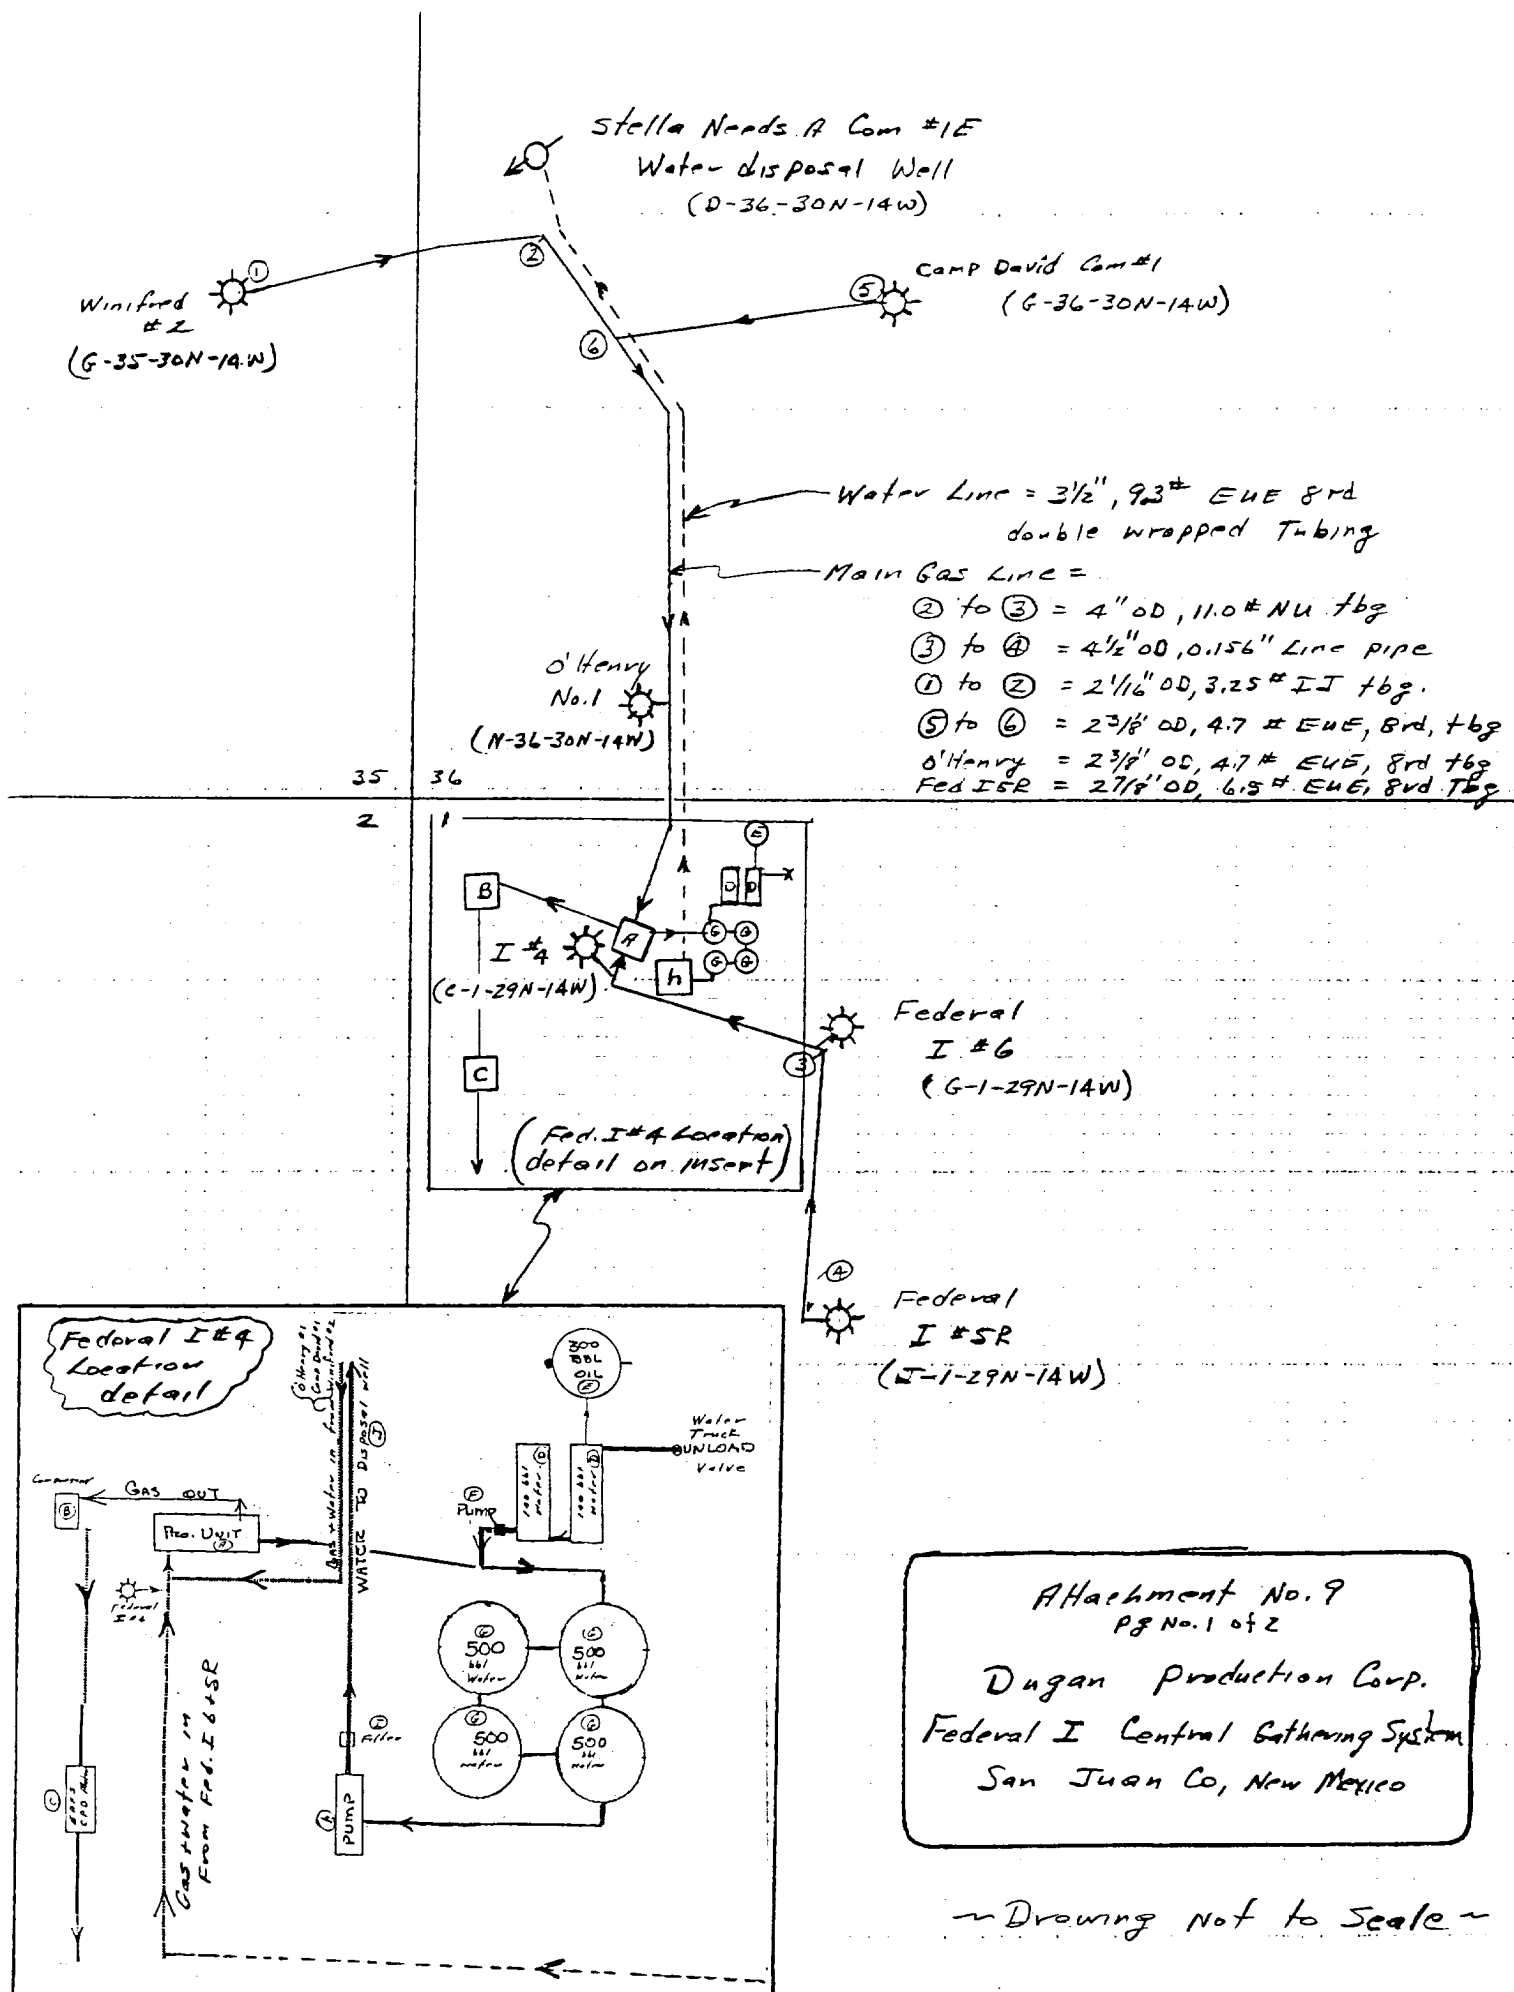 Stella Needs A Com #1E
Water disposal Well
(D-36-30N-14W)
①
②
Winifred
#2
(G-35-30N-14W)
⑤
Camp David Com #1
(G-36-30N-14W)
⑥
Water Line = 3½", 9.3# EUE 8rd
double wrapped Tubing
Main Gas Line =
② to ③ = 4" OD, 11.0# NU tbg
③ to ④ = 4½" OD, 0.156" Line pipe
① to ② = 2 1/16" OD, 3.25# IJ tbg.
⑤ to ⑥ = 2 3/8" OD, 4.7# EUE, 8rd, tbg
O'Henry = 2 3/8" OD, 4.7# EUE, 8rd tbg
Fed I5R = 2 7/8" OD, 6.5# EUE, 8rd Tbg
O'Henry
No.1
(N-36-30N-14W)
35 36
2 1
E
B
D D
X
A
G G
I #4
h
G G
(C-1-29N-14W)
C
③
Federal
I #6
(G-1-29N-14W)
(Fed. I #4 Location
detail on insert)
④
Federal
I #5R
(J-1-29N-14W)
Federal I #4
Location
detail
O'Henry #1
Camp David #1
Winifred #2
Gas + Water in from
WATER TO DISPOSAL Well
J
300
BBL
OIL
E
Water
Truck
UNLOAD
Valve
D
100 bbl
water
D
100 bbl
water
F
Pump
Compressor
B
GAS OUT
Pro. UNIT
A
Federal
I #4
G
500
bbl
Water
G
500
bbl
water
G
500
bbl
water
G
500
bbl
water
I
Filter
Gas + Water in
From Fed. I 6 + 5R
C
CPD
h
PUMP
Attachment No. 9
Pg No. 1 of 2
Dugan Production Corp.
Federal I Central Gathering System
San Juan Co, New Mexico
~ Drawing Not to Scale ~